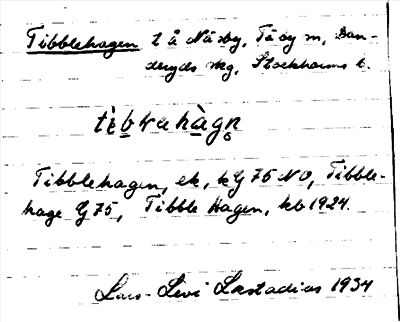 Tibblehagen t å Näsby, Täby sn, Dan-
deryds skg, Stockholms l.
tèb̲lehàgn̥
Tibblehagen, ek, kG 75 NO, Tibble-
hage G 75, Tibble Hagen, kb 1924.
Lars-Levi Læstadius 1934